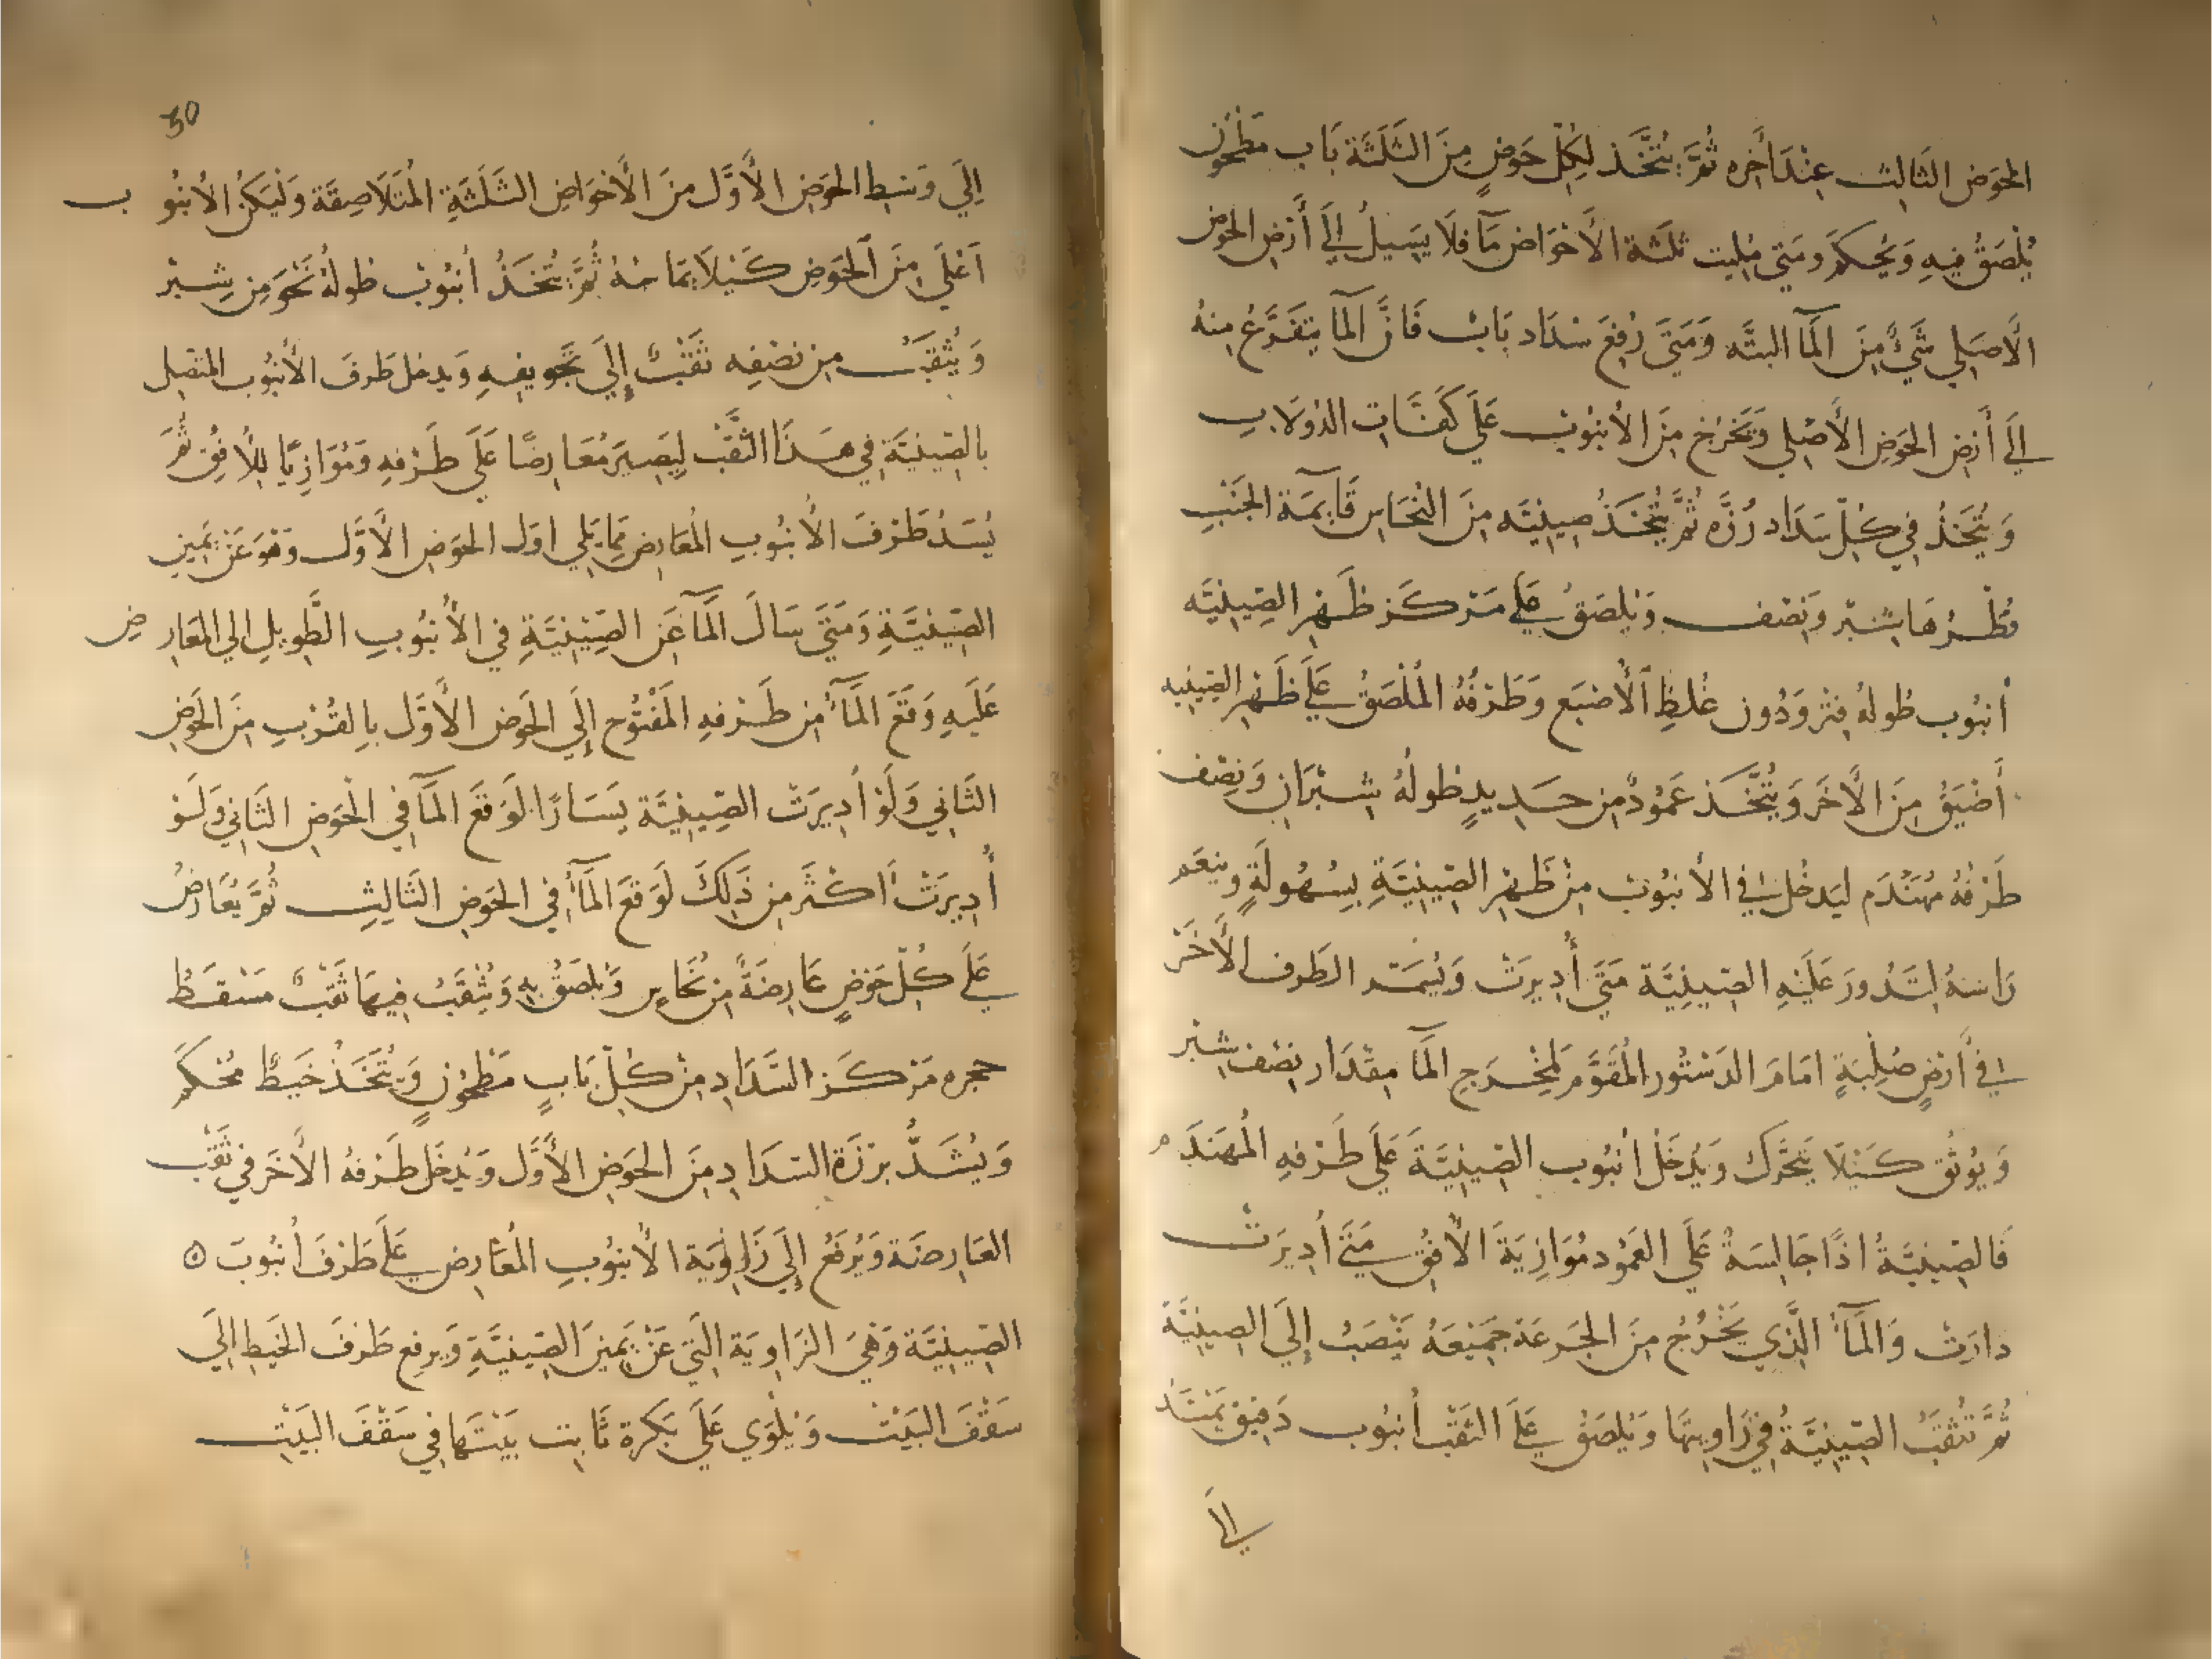 الحوض الثالث عند اَخره ثُمَّ يُتَّخَذ لِكُلّ حَوضٍ مِنَ الثَلَثَة بَاب مَطحُون
يُلصَقُ فيهِ وَيُحكم وَمَتى مُليت ثلثة الأحْوَاض مَآ فلَا يَسيلُ إلَى أَرْضِ الحوض
الأَصَلِي شَيْءٌ مِنَ المَآ البتَّه وَمَتَى رُفِعَ سدَاد بَابٍ فَانَّ المآ يتفَرَّغ مِنهُ
إلَى أَرضِ الحَوضِ الأَصْلي وَيَخرُج مِنَ الأنبُوب عَلَى كَفَّات الدُولَاب
وَيُتَّخَذُ في كُلّ سَدَاد رُزَّه ثُمَّ يُتَّخَذُ صِينيَّه مِنَ النُحَاس قَايمَة الجَنْبِ
قُطْرُهَا شبْر وَنِصْف وَيُلصَقُ عَلى مَرْكَز ظَهْرِ الصِينِيَّه
أنبُوب طُولهُ فِتْر وَدُون غِلظِ الأصْبَع وَطَرْفُهُ المُلْصَقُ عَلَى ظَهْر الصِينيه
أَضيَقُ مِنَ الأَخَر وَيُتَّخَذ عَمُودٌ مِن حَدِيدٍ طولُهُ شبْرَانِ وَنِصْف
طَرْفُهُ مُهَنْدَم ليَدخُل في الأنبُوب مِنْ ظَهْرِ الصِينِيَّةِ بِسُهُولَةٍ وينعم
رَاسهُ لتَدُورَ عَلَيْهِ الصِينِيَّة مَتَى أُدِيرَتْ وَيُسَمّر الطَرف الأخَرْ
في أَرْضٍ صَلبَةٍ امَامَ الدَسْتُور المُقَوَّم لمَخْرَجِ المَآ مقْدَار نِصْف شبْر
وَيُوثَق كَيْلَا يَتَحَرَّك وَيُدخَل أنبُوب الصِينِيَّةِ عَلَى طَرْفِهِ المُهَنْدَم
فَالصِينِيَّةُ اذًا جَالِسَةٌ عَلَى العَمُود مُوَازِيَةَ الأفُق مَتَى أُدِيرَتْ
دارَتْ وَالمَآءُ الَّذِي يَخْرُجُ مِنَ الجَرعَة جَميْعَهُ يَنْصَبُ إلَى الصِينِيَّة
ثُمَّ تُثْقَبُ الصِينِيَّةُ في زَاويتهَا وَيُلصَقُ عَلَى الثَقْبِ أنبُوب دَقِيق يَمْتَدُ
إلى
30
إلَى وَسَطِ الحَوض الأَوَّل مِنَ الأَحْوَاض الثَلَثَةِ المُتَلَاصِقَة وَلْيَكُن الأنبُوب
اَعْلَى مِنَ الحَوض كَيْلَا يُمَاسّهُ ثُمَّ يُتَّخَذُ أنبُوبٌ طولهُ نَحْوَ مِن شِبْر
وَيُثقَبُ مِن نصْفِهِ ثَقْبٌ إلَى تَجويفِهِ وَيدخل طَرفَ الأنبُوب المتصل
بالصِينيَّة في هَذَا الثَّقْب لِيَصِيرَ مُعَارضًا عَلَى طَرْفِهِ وَمُوَازِيًا لِلأفُق ثُمَّ
يُسَدُ طَرْفَ الأنبُوبِ المُعَارض مِمَا يَلي اول الحوَض الأوَّل وَهوَ عَنْ يَمِين
الصِينِيَّةِ وَمَتَى سَالَ المَآ عَن الصِينِيَّةِ في الأنبُوبِ الطَّويلِ إلى المُعَارض
عَلَيهِ وَقَعَ المَآءُ مِن طَرْفِهِ المَفْتُوح إلَى الحَوض الأَوَّل بالقُرْبِ مِنَ الحَوضِ
الثَاني وَلَوْ أدِيرَتْ الصِينِيَّة يَسَارًا لَوَقَعَ المَآ في الحَوض الثَانِي وَلَوْ
أدِيرَتْ اَكثَر مِن ذَلِكَ لَوَقَعَ المَآءُ في الحَوض الثَالِثِ ثُمَّ يُعَارَضُ
عَلَى كُلّ حَوْضٍ عَارِضَةً مِن نُحَاس وَيُلصَقُ بِهِ وَيُثْقَبُ فيهَا ثَقبٌ مَسْقَطُ
حجره مَرْكَز السَّدَاد مِنْ كُلّ بَابٍ مَطْحُونٍ وَيُتَّخَذُ خَيطٌ مُحْكَم
وَيُشَدُّ برزَّة السَدَاد مِنَ الحَوض الأوَّل وَيُدخَل طَرْفهُ الأَخَر في ثَقْب
العَارِضَة وَيُرفَعُ إلَى زَاوِيَة الأنبُوب المُعَارض عَلَى طَرْفَ أنبُوبَ ۞
الصِينِيَّة وَهْيَ الزَاوِيَة الَتي عَنْ يَمِينَ الصِينِيَّةِ وَيرفع طَرْفَ الخَيط إلَى
سَقْفَ البَيْتِ وَيُلْوَي عَلَى بَكرة ثَابت بَيْتهَا في سَقْفَ البَيْتِ